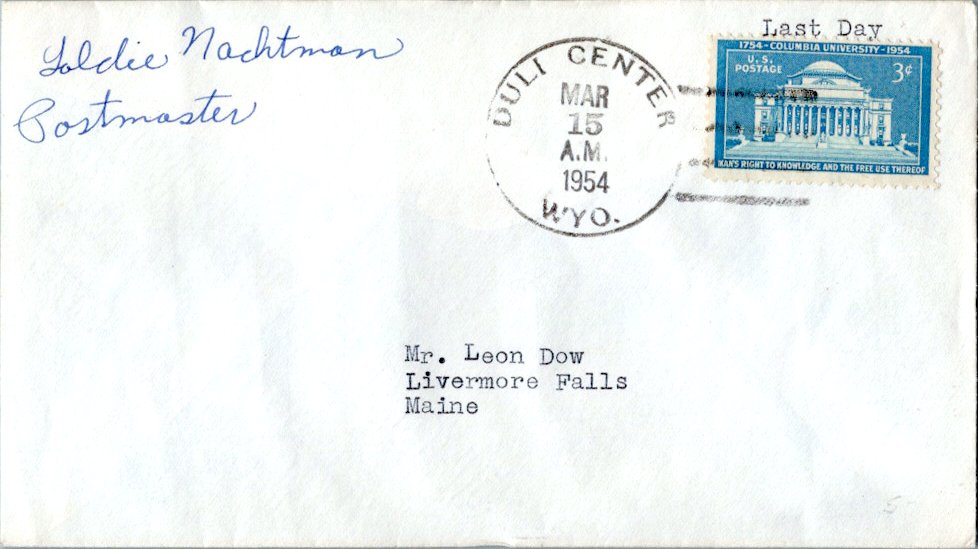 Goldie Nachtman
Postmaster
Last Day
1754-COLUMBIA UNIVERSITY-1954
U.S.
POSTAGE
3¢
MAN'S RIGHT TO KNOWLEDGE AND THE FREE USE THEREOF
DULI CENTER
MAR
15
A.M.
1954
WYO.
Mr. Leon Dow
Livermore Falls
Maine